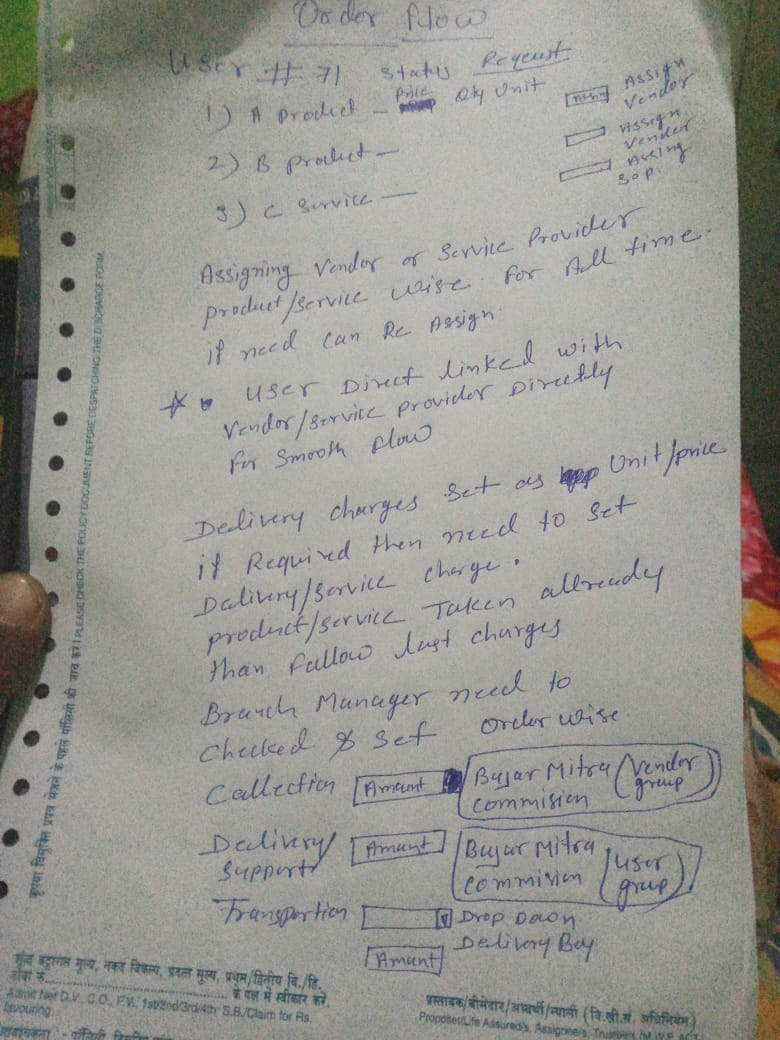 Order Flow
User # 71 Status Request
1) A Product - Price Qty Unit Assign Assign Vendor
2) B Product - Assign Vendor
3) C Service - Assing SOP
Assigning Vendor or Service Provider
Product/Service wise for All time.
if need can Re Assign
* User Direct linked with
Vendor/Service Provider Directly
For Smooth flow
Delivery charges set as Unit/price
if Required then need to set
Delivery/Service charge.
product/service Taken allready
than fallow last charges
Branch Manager need to
Checked & Set Order wise
Callection Amaunt Bajar Mitra (Vendor group)
commision
Delivery Support Amaunt Bajar Mitra (User group)
commision
Transportion Drop Down
Delivery Boy
Amaunt
कृपया विमुक्ति प्रपत्र भेजने के पहले पॉलिसी की जांच करें। PLEASE CHECK THE POLICY DOCUMENT BEFORE DESPATCHING THE DISCHARGE FORM.
शुद्ध बट्टागत मूल्य, नकद विकल्प, प्रदत्त मूल्य, प्रथम/द्वितीय वि./हि.
के पक्ष में स्वीकार करें.
Admit Net D.V. C.O., P.V. 1st/2nd/3rd/4th S.B./Claim for Rs.
favouring
प्रस्तावक/बीमेदार/
Proposer/Life Assured/s, Assignee/s, Trustee/s (M.W.P. ACT